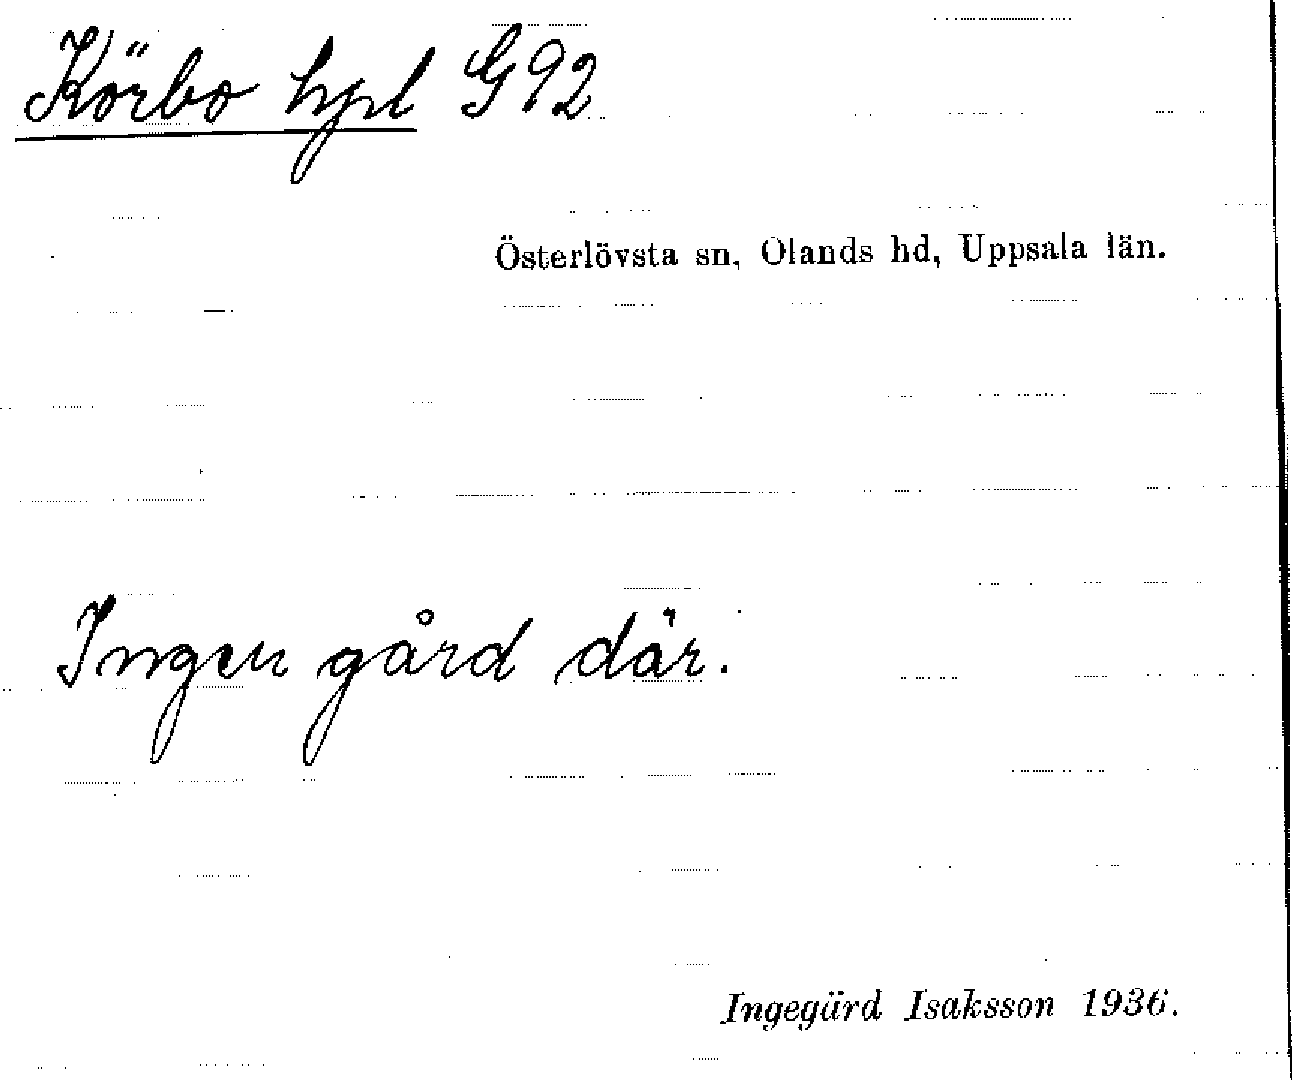 Körbo hpl G92
Österlövsta sn, Olands hd, Uppsala län.
Ingen gård där.
Ingegärd Isaksson 1936.